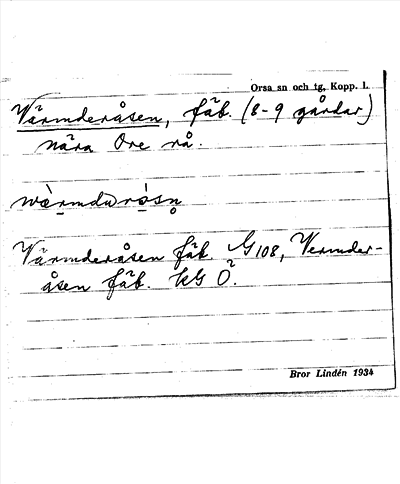 Orsa sn och tg, Kopp. l.
Värmderåsen, fäb. (8-9 gårdar)
nära Ore rå.
Värmderåsen fäb. G 108, Vermder-
åsen fäb. kG Ö.
Bror Lindén 1934